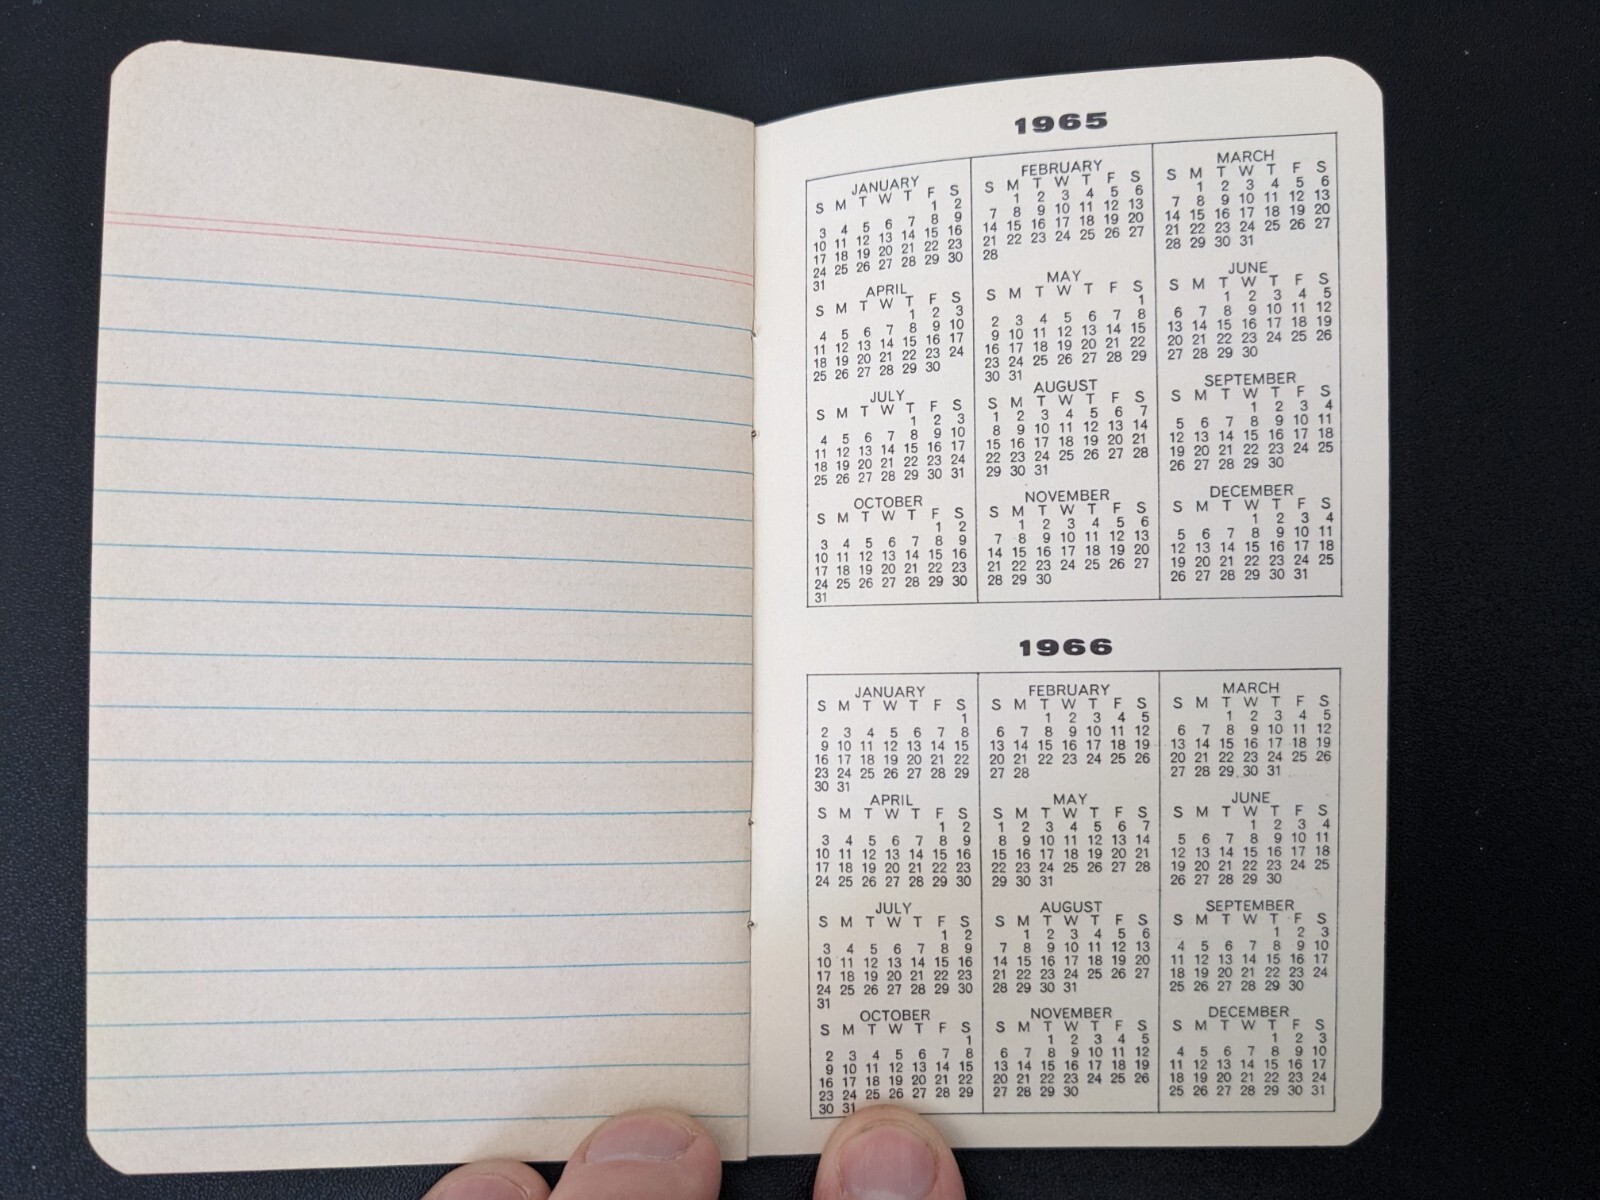 1965
JANUARY
S M T W T F S
1 2
3 4 5 6 7 8 9
10 11 12 13 14 15 16
17 18 19 20 21 22 23
24 25 26 27 28 29 30
31
FEBRUARY
S M T W T F S
1 2 3 4 5 6
7 8 9 10 11 12 13
14 15 16 17 18 19 20
21 22 23 24 25 26 27
28
MARCH
S M T W T F S
1 2 3 4 5 6
7 8 9 10 11 12 13
14 15 16 17 18 19 20
21 22 23 24 25 26 27
28 29 30 31
APRIL
S M T W T F S
1 2 3
4 5 6 7 8 9 10
11 12 13 14 15 16 17
18 19 20 21 22 23 24
25 26 27 28 29 30
MAY
S M T W T F S
1
2 3 4 5 6 7 8
9 10 11 12 13 14 15
16 17 18 19 20 21 22
23 24 25 26 27 28 29
30 31
JUNE
S M T W T F S
1 2 3 4 5
6 7 8 9 10 11 12
13 14 15 16 17 18 19
20 21 22 23 24 25 26
27 28 29 30
JULY
S M T W T F S
1 2 3
4 5 6 7 8 9 10
11 12 13 14 15 16 17
18 19 20 21 22 23 24
25 26 27 28 29 30 31
AUGUST
S M T W T F S
1 2 3 4 5 6 7
8 9 10 11 12 13 14
15 16 17 18 19 20 21
22 23 24 25 26 27 28
29 30 31
SEPTEMBER
S M T W T F S
1 2 3 4
5 6 7 8 9 10 11
12 13 14 15 16 17 18
19 20 21 22 23 24 25
26 27 28 29 30
OCTOBER
S M T W T F S
1 2
3 4 5 6 7 8 9
10 11 12 13 14 15 16
17 18 19 20 21 22 23
24 25 26 27 28 29 30
31
NOVEMBER
S M T W T F S
1 2 3 4 5 6
7 8 9 10 11 12 13
14 15 16 17 18 19 20
21 22 23 24 25 26 27
28 29 30
DECEMBER
S M T W T F S
1 2 3 4
5 6 7 8 9 10 11
12 13 14 15 16 17 18
19 20 21 22 23 24 25
26 27 28 29 30 31
1966
JANUARY
S M T W T F S
1
2 3 4 5 6 7 8
9 10 11 12 13 14 15
16 17 18 19 20 21 22
23 24 25 26 27 28 29
30 31
FEBRUARY
S M T W T F S
1 2 3 4 5
6 7 8 9 10 11 12
13 14 15 16 17 18 19
20 21 22 23 24 25 26
27 28
MARCH
S M T W T F S
1 2 3 4 5
6 7 8 9 10 11 12
13 14 15 16 17 18 19
20 21 22 23 24 25 26
27 28 29 30 31
APRIL
S M T W T F S
1 2
3 4 5 6 7 8 9
10 11 12 13 14 15 16
17 18 19 20 21 22 23
24 25 26 27 28 29 30
MAY
S M T W T F S
1 2 3 4 5 6 7
8 9 10 11 12 13 14
15 16 17 18 19 20 21
22 23 24 25 26 27 28
29 30 31
JUNE
S M T W T F S
1 2 3 4
5 6 7 8 9 10 11
12 13 14 15 16 17 18
19 20 21 22 23 24 25
26 27 28 29 30
JULY
S M T W T F S
1 2
3 4 5 6 7 8 9
10 11 12 13 14 15 16
17 18 19 20 21 22 23
24 25 26 27 28 29 30
31
AUGUST
S M T W T F S
1 2 3 4 5 6
7 8 9 10 11 12 13
14 15 16 17 18 19 20
21 22 23 24 25 26 27
28 29 30 31
SEPTEMBER
S M T W T F S
1 2 3
4 5 6 7 8 9 10
11 12 13 14 15 16 17
18 19 20 21 22 23 24
25 26 27 28 29 30
OCTOBER
S M T W T F S
1
2 3 4 5 6 7 8
9 10 11 12 13 14 15
16 17 18 19 20 21 22
23 24 25 26 27 28 29
30 31
NOVEMBER
S M T W T F S
1 2 3 4 5
6 7 8 9 10 11 12
13 14 15 16 17 18 19
20 21 22 23 24 25 26
27 28 29 30
DECEMBER
S M T W T F S
1 2 3
4 5 6 7 8 9 10
11 12 13 14 15 16 17
18 19 20 21 22 23 24
25 26 27 28 29 30 31